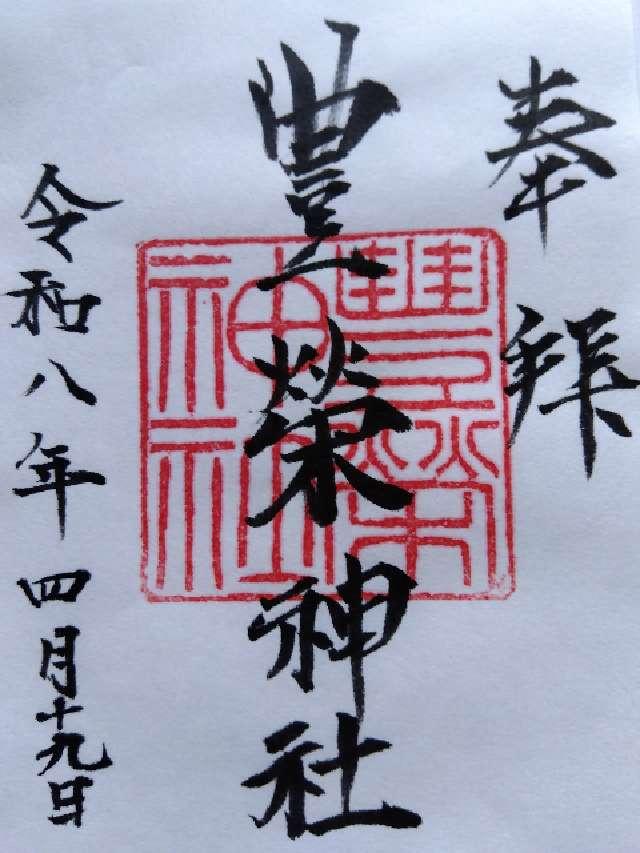 奉拝
豊榮神社
豊榮神社
令和八年四月十九日